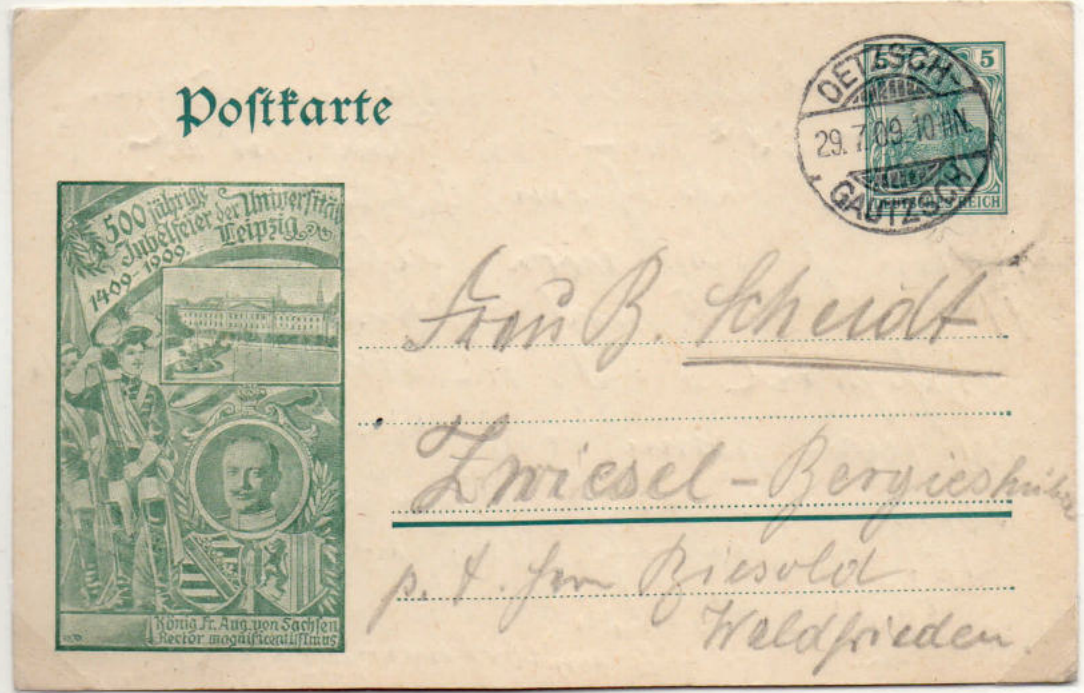 Postkarte
5 5
DEUTSCHES REICH
OETZSCH-
29. 7. 09. 10-11N.
GAUTZSCH
500 jährige
Jubelfeier der Universität
Leipzig
1409-1909.
König Fr. Aug. von Sachsen
Rector magnificentissimus
Frau B. Scheidt
Zwiesel - Bergieshübel
p. A. Herrn Biesold
Waldfrieden.